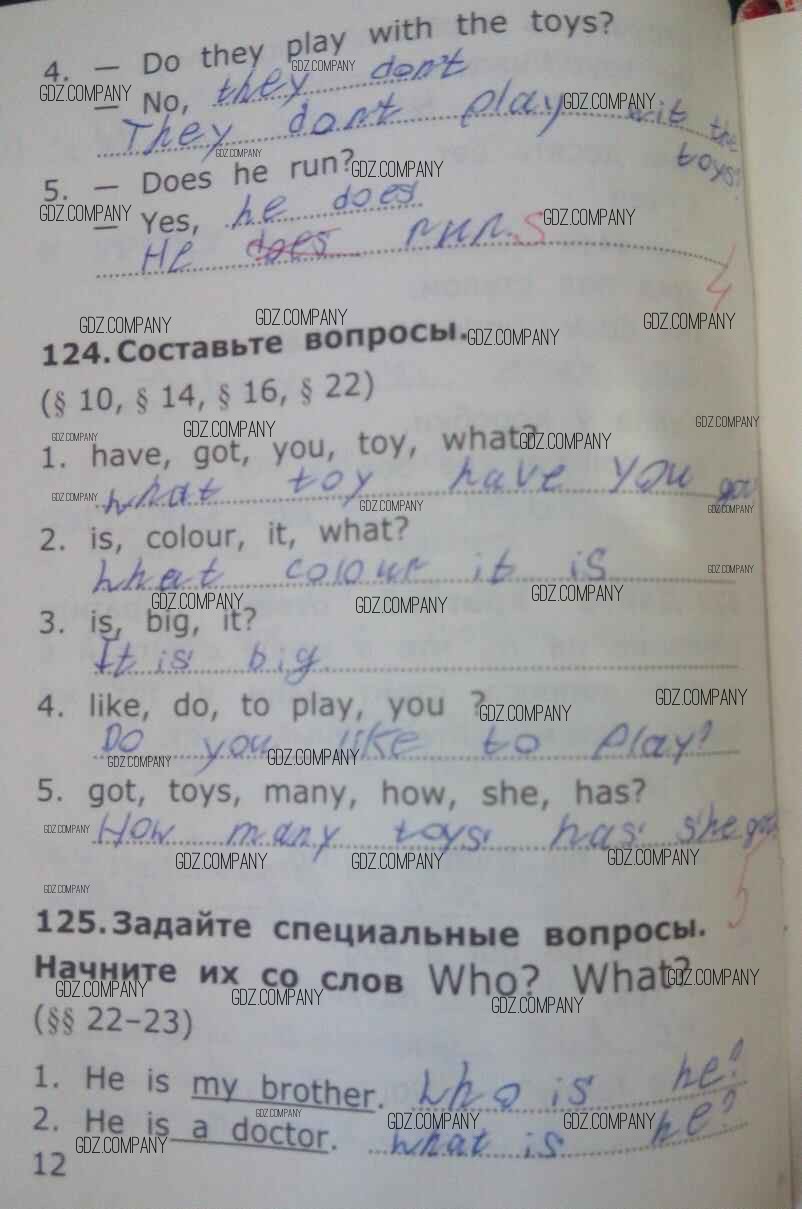 4. — Do they play with the toys?
— No, they dont
They dont play wit the
toys.
5. — Does he run?
— Yes, he does
He does runs
4
124. Составьте вопросы.
(§ 10, § 14, § 16, § 22)
1. have, got, you, toy, what?
what toy have you got
2. is, colour, it, what?
what colour it is
3. is, big, it?
It is big
4. like, do, to play, you ?
Do you like to play?
5. got, toys, many, how, she, has?
How many toys has she got
5
125. Задайте специальные вопросы.
Начните их со слов Who? What?
(§§ 22–23)
1. He is my brother. who is he?
2. He is a doctor. what is he?
12
GDZ.COMPANY